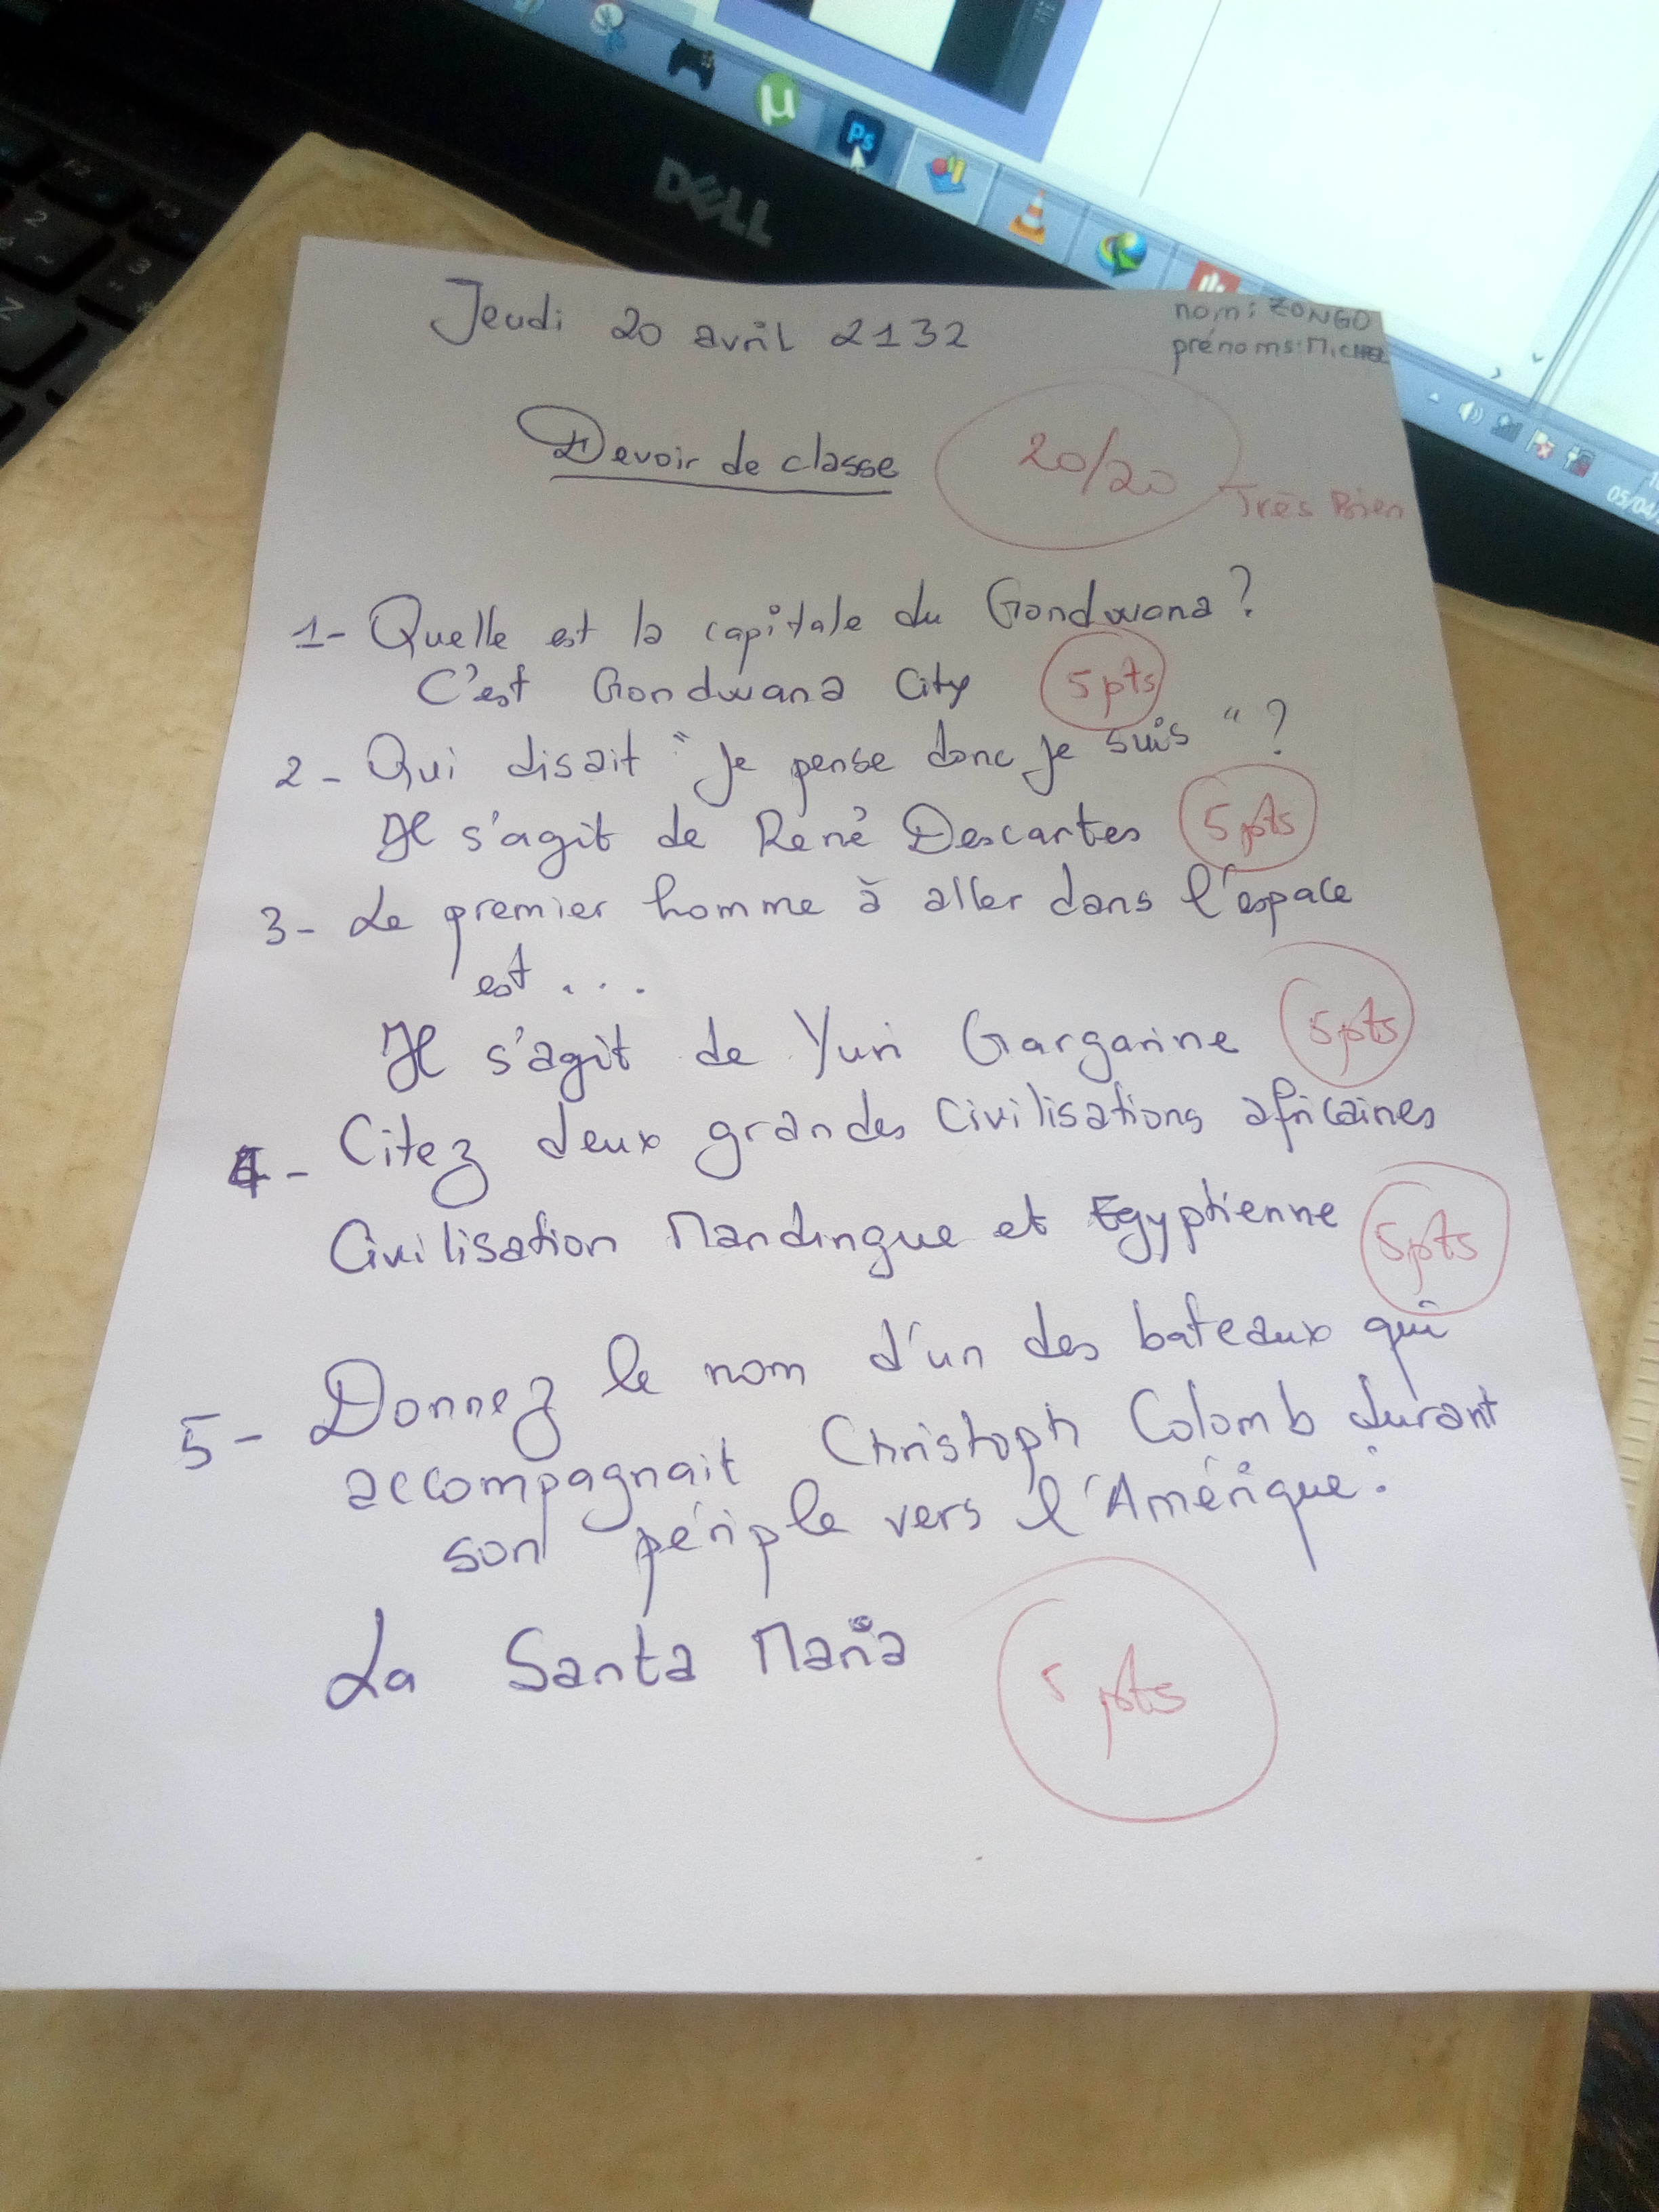 Ps
DELL
Jeudi 20 avril 2132
nom: ZONGO
prénoms: MICHEL
Devoir de classe
20/20
Très Bien
05/04/
1- Quelle est la capitale du Gondwana ?
C'est Gondwana City
5pts
2- Qui disait "Je pense donc je suis" ?
Il s'agit de René Descartes
5pts
3- Le premier homme à aller dans l'espace
est ...
Il s'agit de Yuri Gargarine
5pts
4- Citez deux grandes civilisations africaines
Civilisation Mandingue et Egyptienne
5pts
5- Donnez le nom d'un des bateaux qui
accompagnait Christoph Colomb durant
son périple vers l'Amérique.
La Santa Maria
5 pts